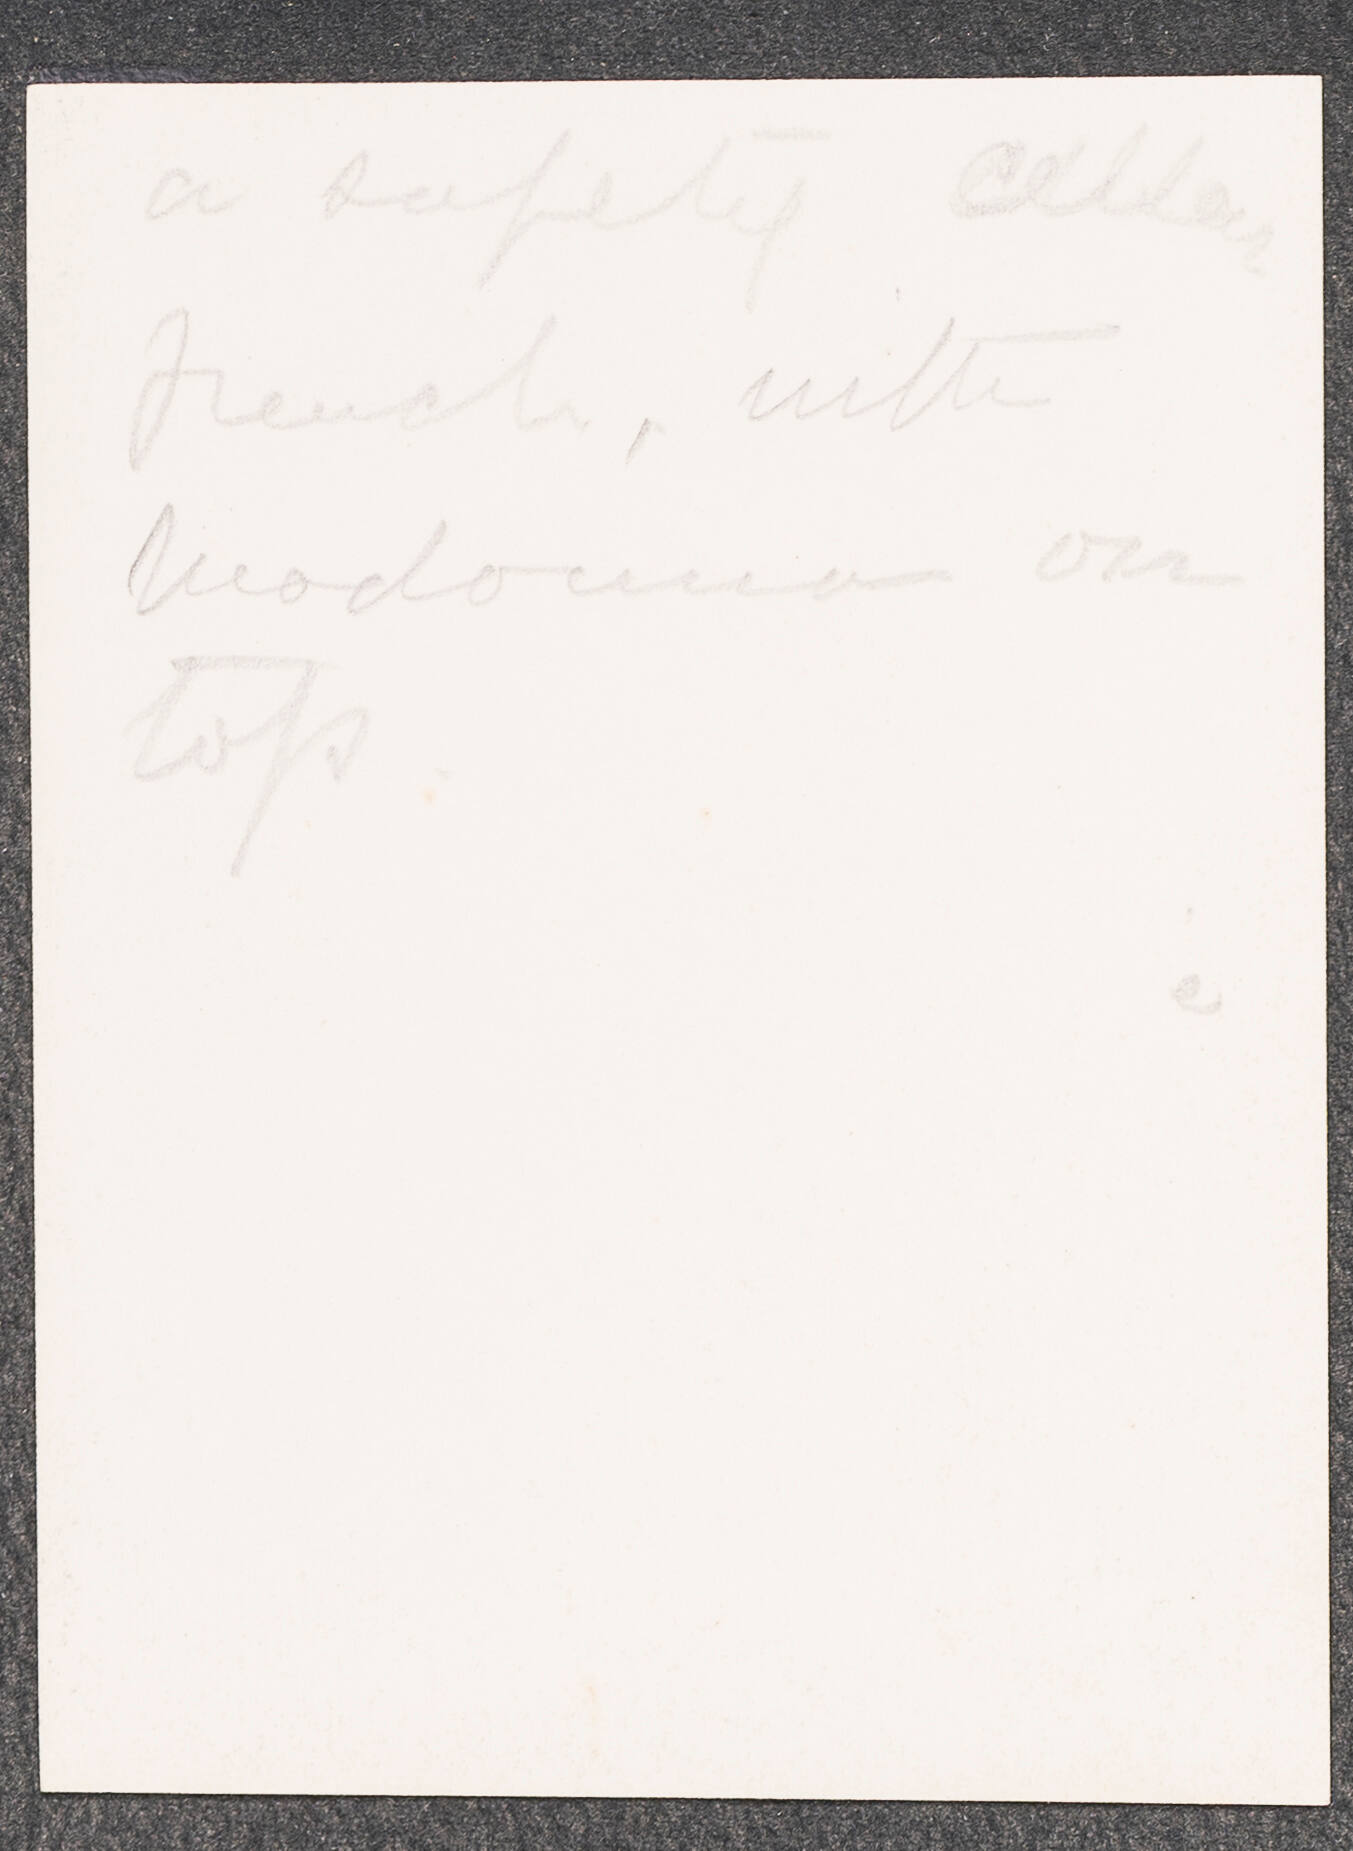 a safety cellar
French, with
Madonna on
top
e